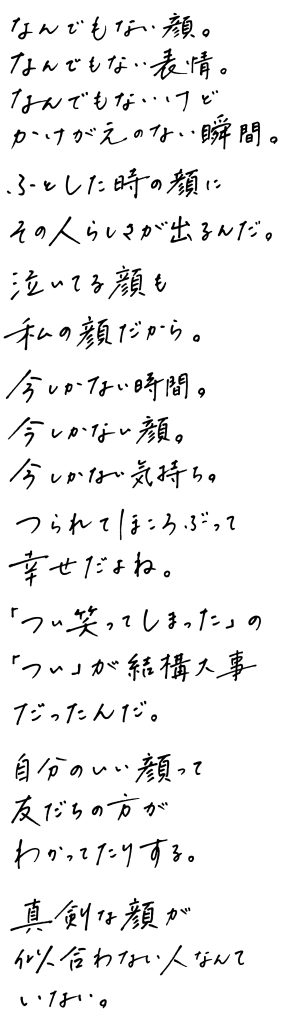 なんでもない顔。
なんでもない表情。
なんでもないけど
かけがえのない瞬間。
ふとした時の顔に
その人らしさが出るんだ。
泣いてる顔も
私の顔だから。
今しかない時間。
今しかない顔。
今しかない気持ち。
つられてほころぶって
幸せだよね。
「つい笑ってしまった」の
「つい」が結構大事
だったんだ。
自分のいい顔って
友だちの方が
わかってたりする。
真剣な顔が
似合わない人なんて
いない。